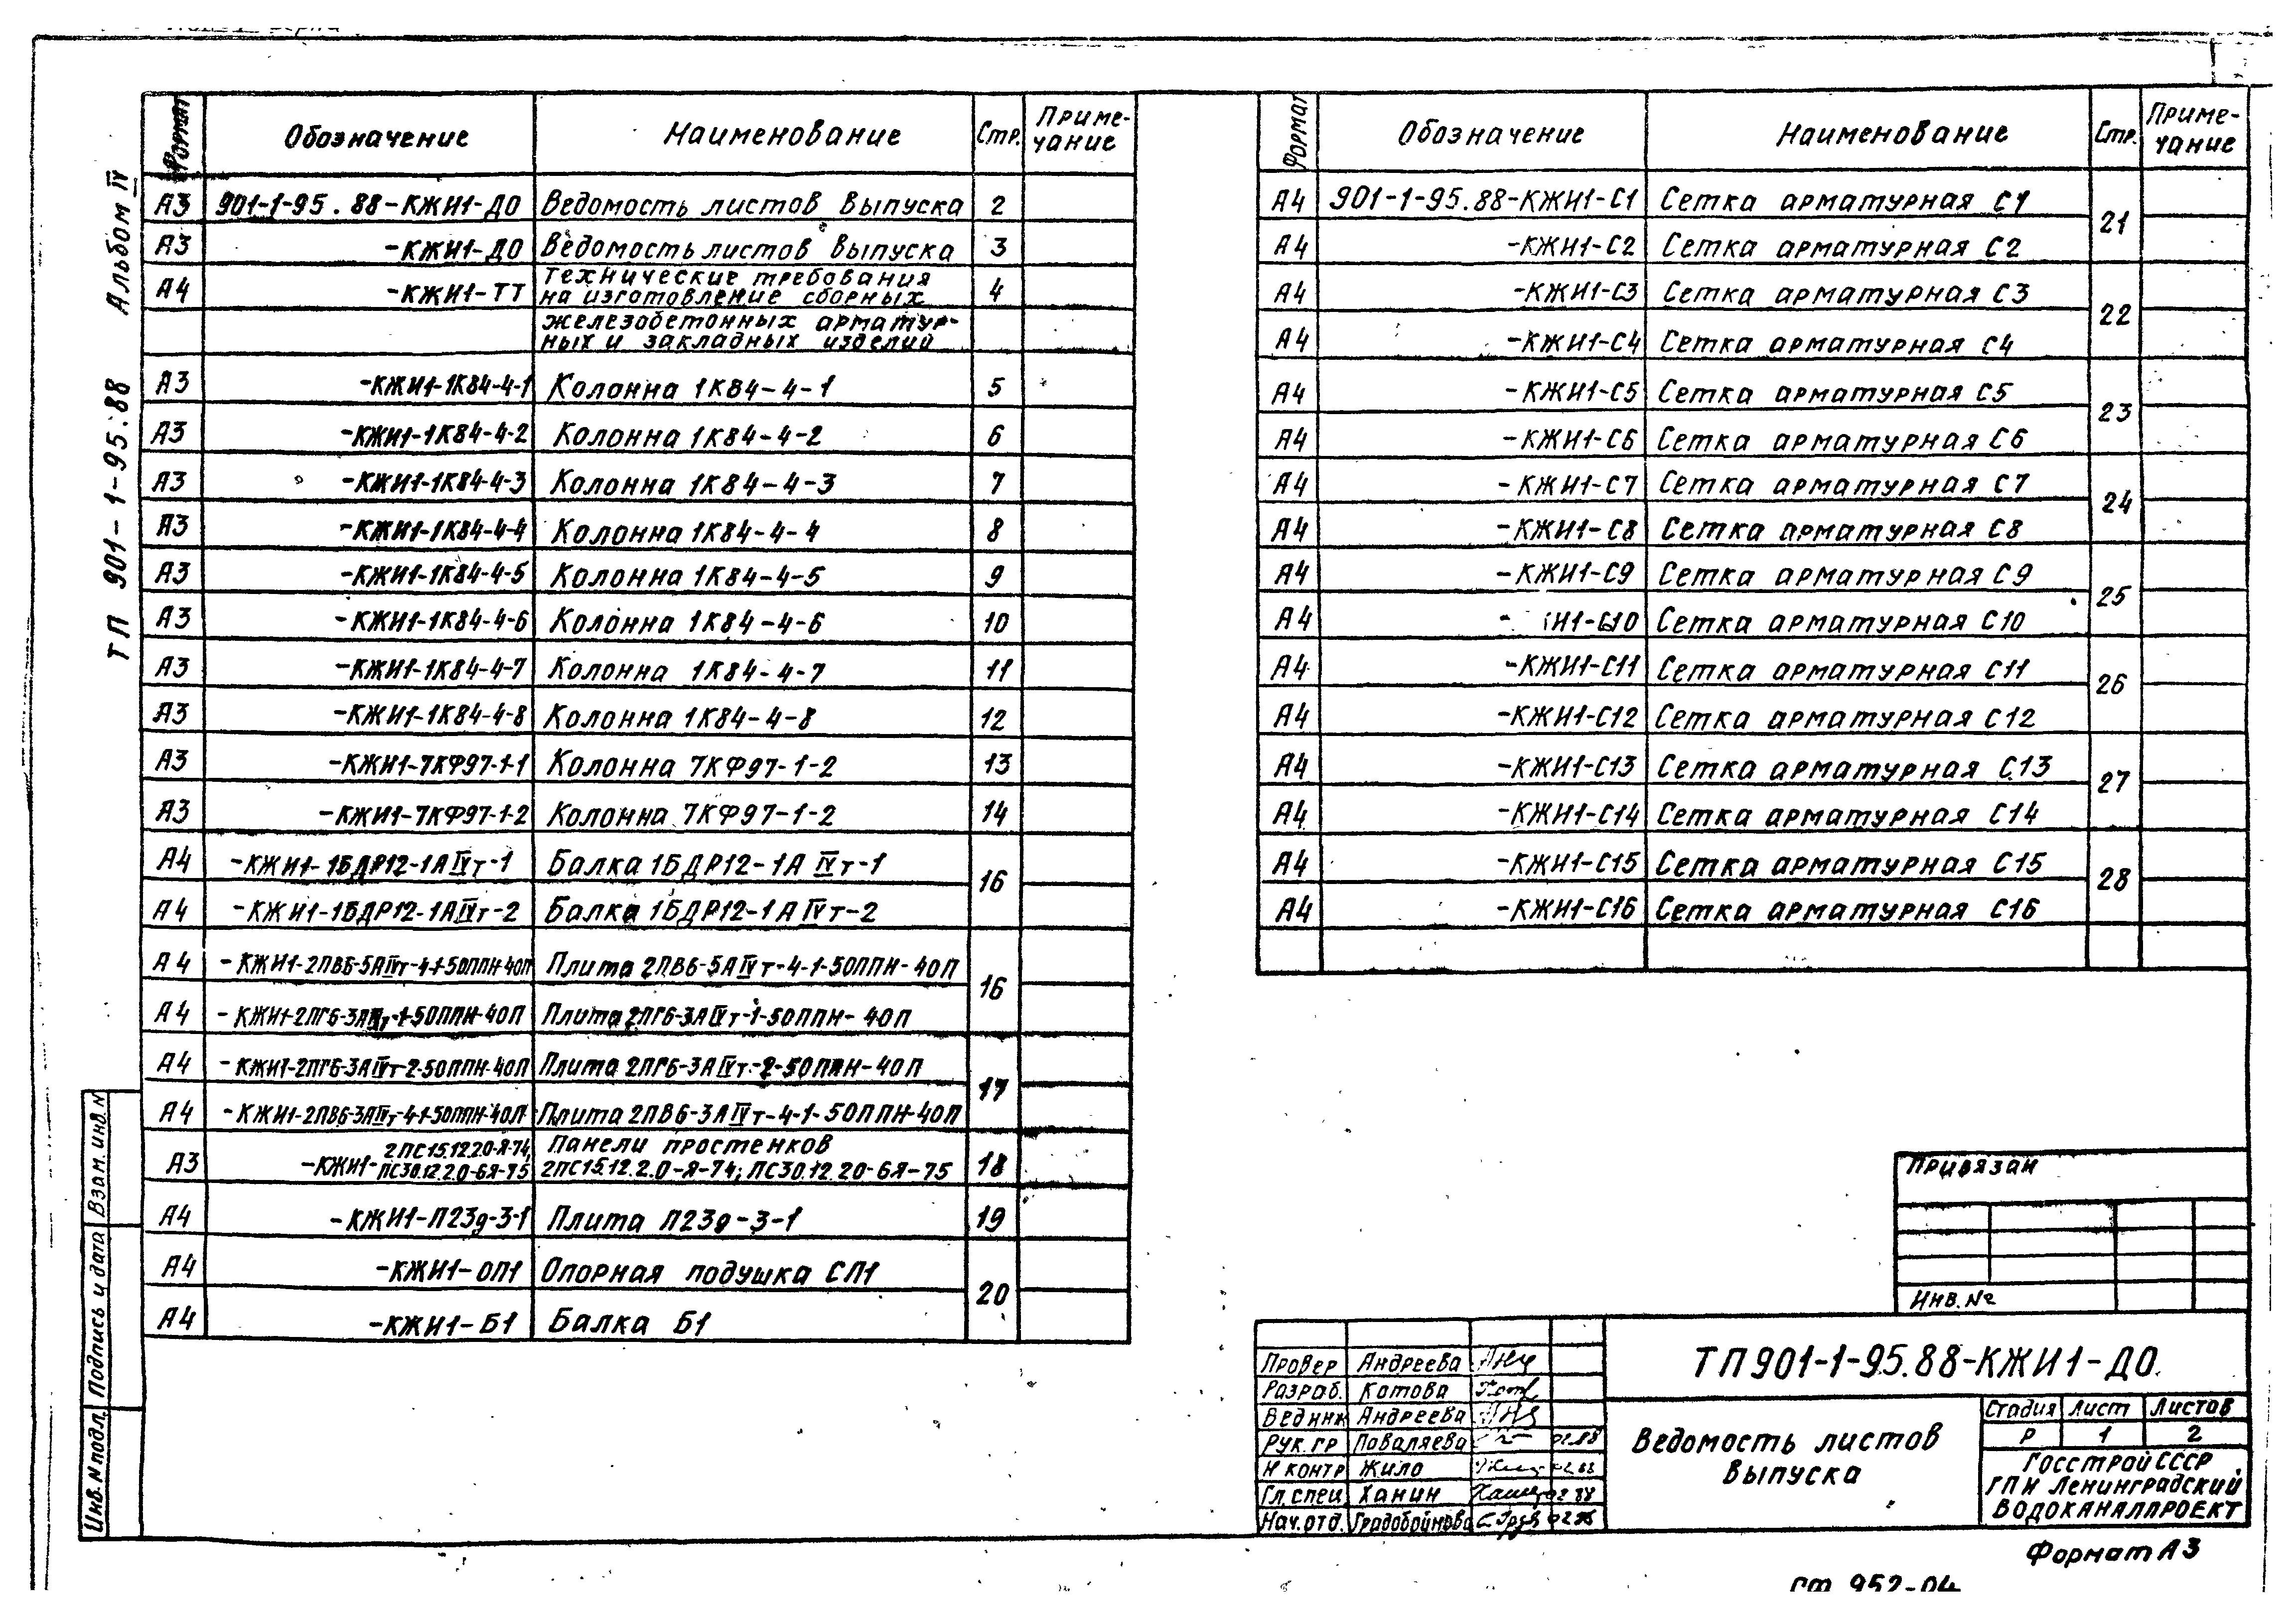 ТП 901-1-95.88 Альбом IV
Формат Обозначение Наименование Стр. Приме-
чание
А3 901-1-95.88-КЖИ1-ДО Ведомость листов выпуска 2
А3 -КЖИ1-ДО Ведомость листов выпуска 3
А4 -КЖИ1-ТТ Технические требования 4
на изготовление сборных
железобетонных арматур-
ных и закладных изделий
А3 -КЖИ1-1К84-4-1 Колонна 1К84-4-1 5
А3 -КЖИ1-1К84-4-2 Колонна 1К84-4-2 6
А3 -КЖИ1-1К84-4-3 Колонна 1К84-4-3 7
А3 -КЖИ1-1К84-4-4 Колонна 1К84-4-4 8
А3 -КЖИ1-1К84-4-5 Колонна 1К84-4-5 9
А3 -КЖИ1-1К84-4-6 Колонна 1К84-4-6 10
А3 -КЖИ1-1К84-4-7 Колонна 1К84-4-7 11
А3 -КЖИ1-1К84-4-8 Колонна 1К84-4-8 12
А3 -КЖИ1-7КФ97-1-1 Колонна 7КФ97-1-2 13
А3 -КЖИ1-7КФ97-1-2 Колонна 7КФ97-1-2 14
А4 -КЖИ1-1БДР12-1АIVт-1 Балка 1БДР12-1АIVт-1 16
А4 -КЖИ1-1БДР12-1АIVт-2 Балка 1БДР12-1АIVт-2
А4 -КЖИ1-2ПВ6-5АIVт-4-1-50ППН-40П Плита 2ПВ6-5АIVт-4-1-50ППН-40П 16
А4 -КЖИ1-2ПГ6-3АIVт-1-50ППН-40П Плита 2ПГ6-3АIVт-1-50ППН-40П
А4 -КЖИ1-2ПГ6-3АIVт-2-50ППН-40П Плита 2ПГ6-3АIVт-2-50ППН-40П 17
А4 -КЖИ1-2ПВ6-3АIVт-4-1-50ППН-40П Плита 2ПВ6-3АIVт-4-1-50ППН-40П
А3 -КЖИ1-2ПС15.12.2.0-Я-74, Панели простенков 18
ПС30.12.2.0-6Я-75 2ПС15.12.2.0-Я-74; ПС30.12.20-6Я-75
А4 -КЖИ1-П23д-3-1 Плита П23д-3-1 19
А4 -КЖИ1-ОП1 Опорная подушка СП1 20
А4 -КЖИ1-Б1 Балка Б1
Формат Обозначение Наименование Стр. Приме-
чание
А4 901-1-95.88-КЖИ1-С1 Сетка арматурная С1 21
А4 -КЖИ1-С2 Сетка арматурная С2
А4 -КЖИ1-С3 Сетка арматурная С3 22
А4 -КЖИ1-С4 Сетка арматурная С4
А4 -КЖИ1-С5 Сетка арматурная С5 23
А4 -КЖИ1-С6 Сетка арматурная С6
А4 -КЖИ1-С7 Сетка арматурная С7 24
А4 -КЖИ1-С8 Сетка арматурная С8
А4 -КЖИ1-С9 Сетка арматурная С9 25
А4 Сетка арматурная С10
А4 -КЖИ1-С11 Сетка арматурная С11 26
А4 -КЖИ1-С12 Сетка арматурная С12
А4 -КЖИ1-С13 Сетка арматурная С13 27
А4 -КЖИ1-С14 Сетка арматурная С14
А4 -КЖИ1-С15 Сетка арматурная С15 28
А4 -КЖИ1-С16 Сетка арматурная С16
Привязан
Инв. №
Провер Андреева
Разраб. Котова
Вед инж Андреева
Рук. гр Поваляева 02.88
Н контр Жило 02 88
Гл. спец Ханин 02 88
Нач. отд. Градобойнова
ТП901-1-95.88-КЖИ1-ДО.
Ведомость листов
выпуска
Стадия Лист Листов
Р 1 2
Госстрой СССР
ГПИ Ленинградский
ВОДОКАНАЛПРОЕКТ
Инв. N подл. Подпись и дата Взам. инв. N
Формат А3
952-04